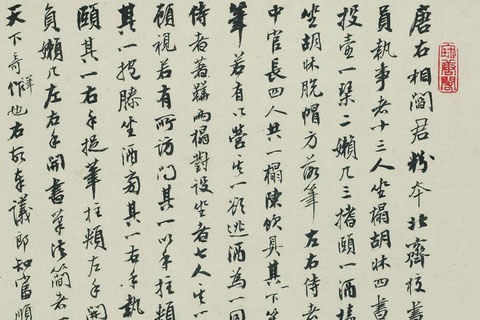 唐右相閻君粉本北齊校書
員執事者十三人坐榻胡床四書
投壺一琴二懶几三搘頤一酒榼
坐胡床脫帽方落筆左右侍者
中官長四人共一榻陳飲具其一下筆
筆若有所營其一欲逃酒為一同
侍者著鞾兩榻對設坐者七人其一
顧視若有所訪問其一以手拄頰
其一抱膝坐酒旁其一右手執
頤其一右手捉筆拄頰左手開
負懶几左右手開書筆法簡者
天下奇作也右故奉議郎知富順